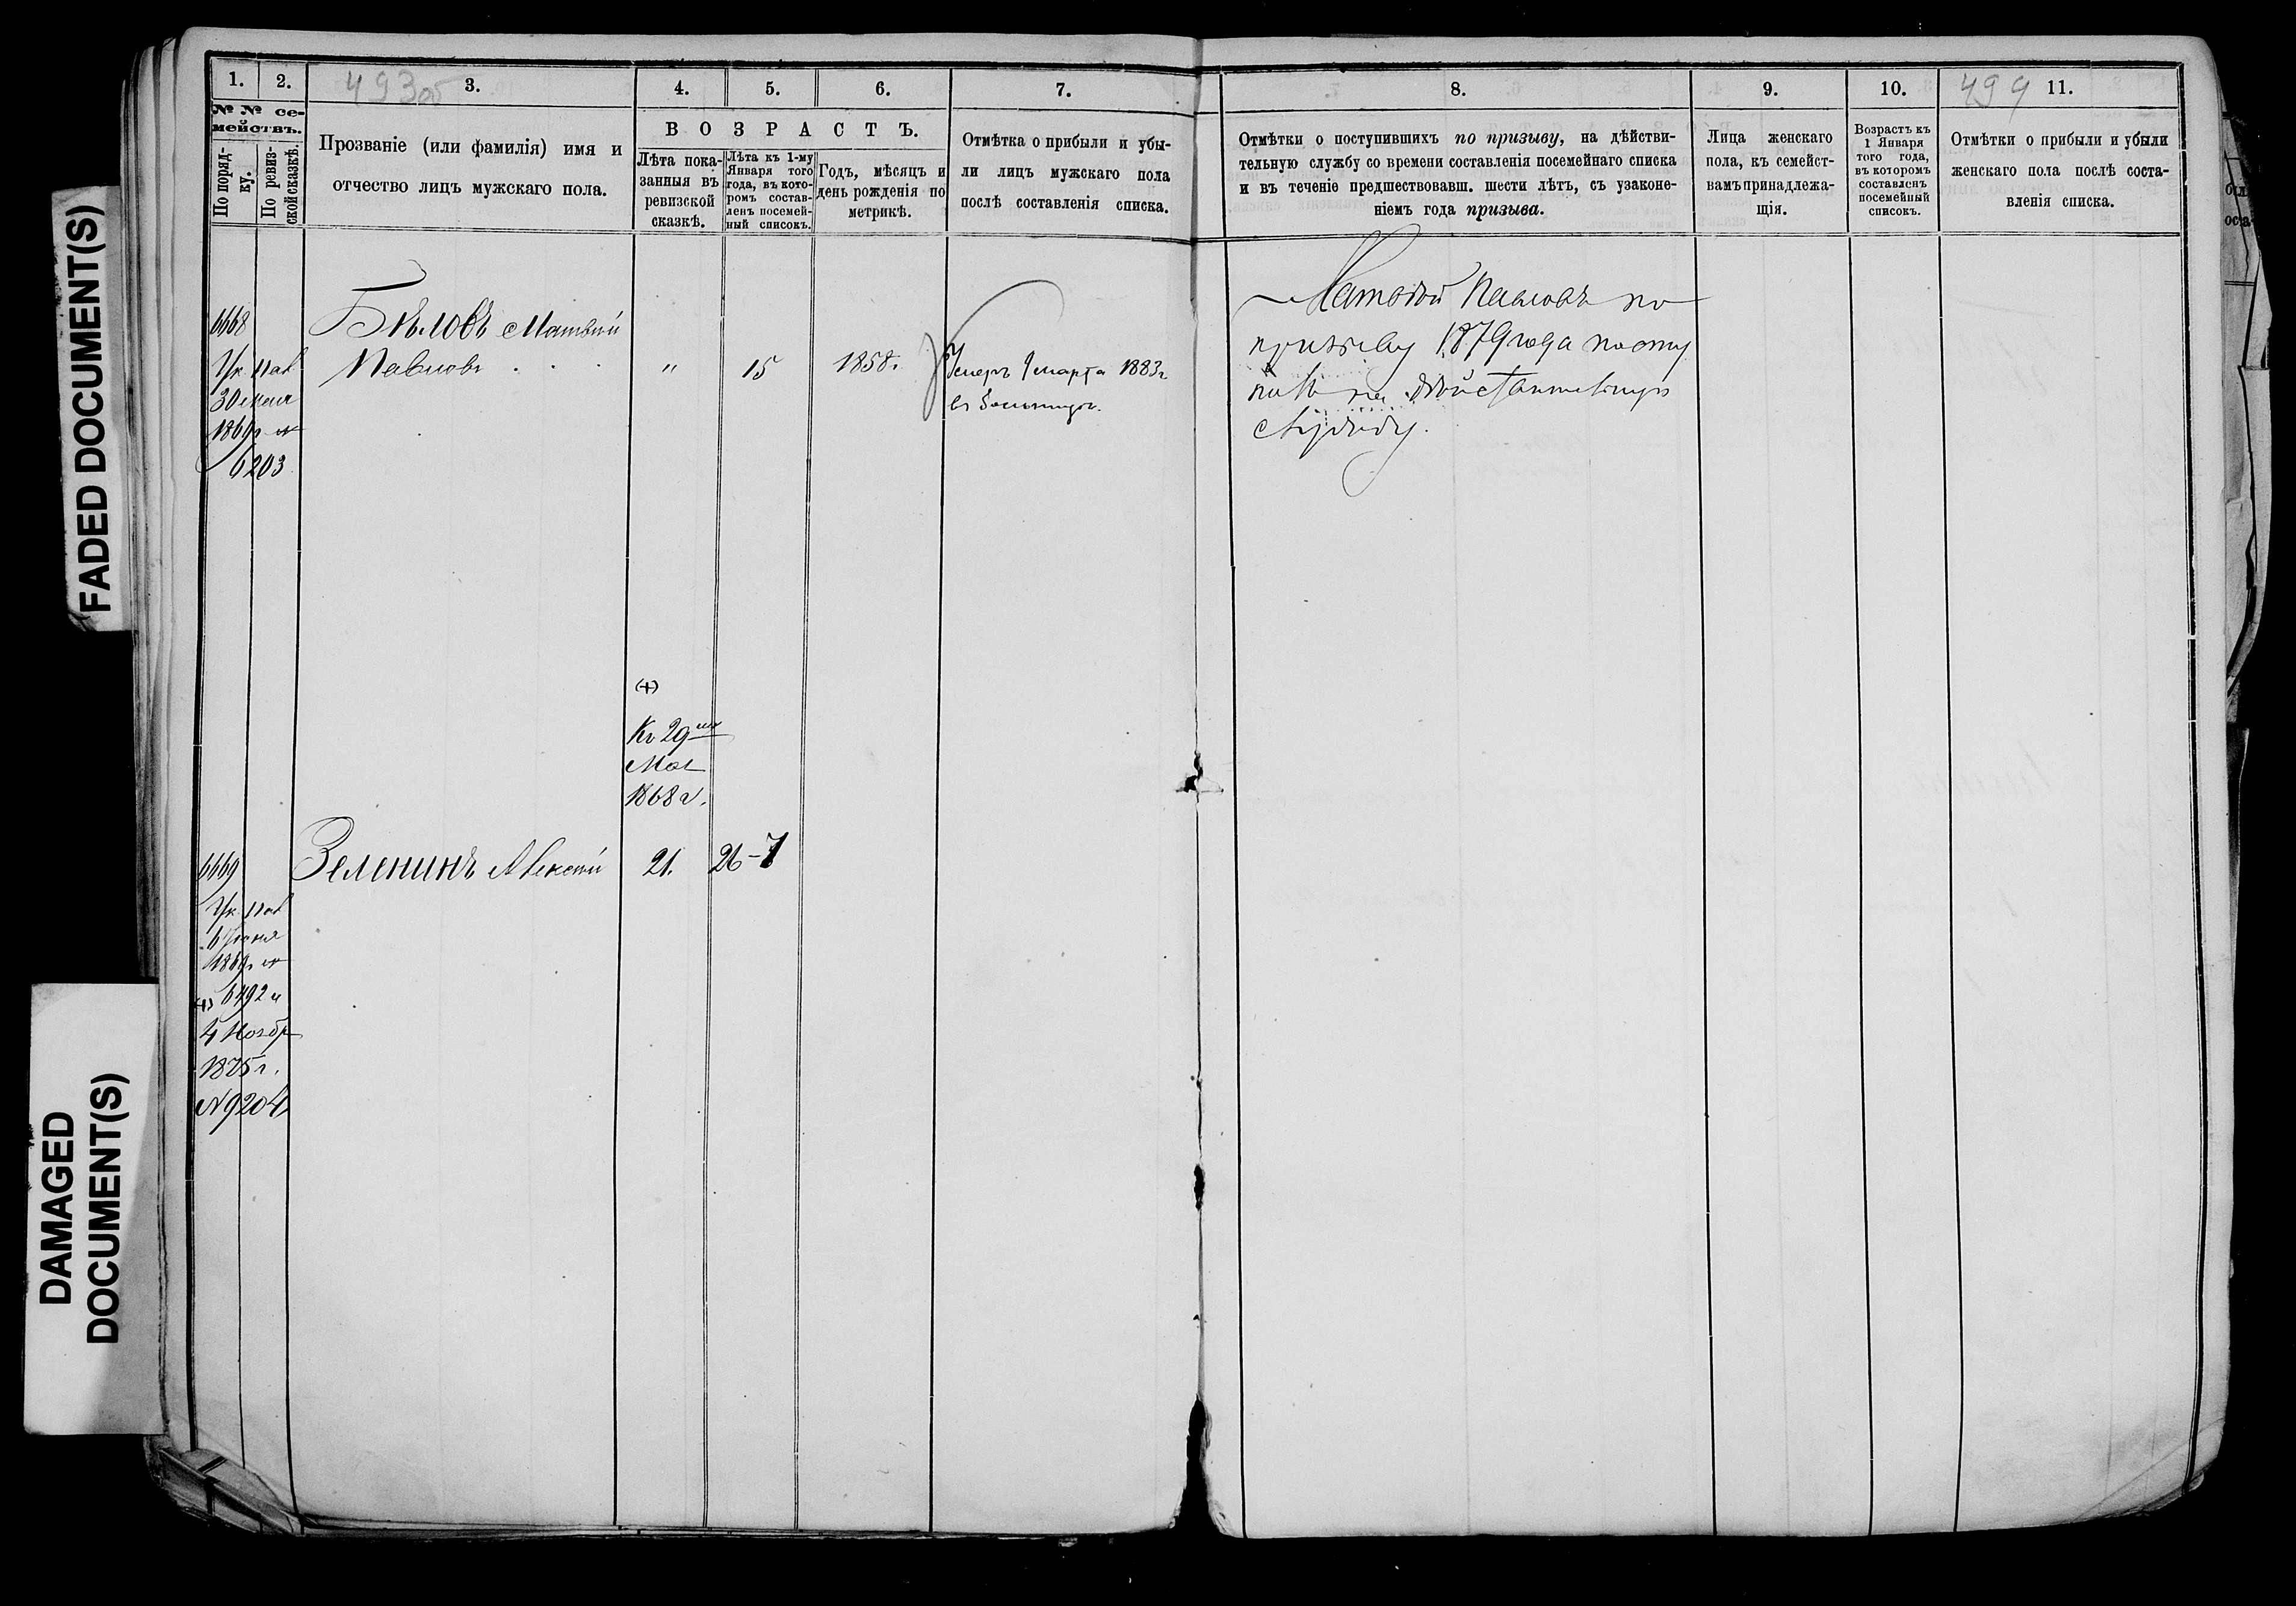 FADED DOCUMENT(S)
DAMAGED
DOCUMENT(S)
1.
2.
3.
4.
5.
6.
7.
493об
№ № се-
мействъ.
По поряд-
ку.
По ревиз-
ской сказкѣ.
Прозваніе (или фамилія) имя и
отчество лицъ мужскаго пола.
ВОЗРАСТЪ.
Лѣта пока-
занныя въ
ревизской
сказкѣ.
Лѣта къ 1-му
Января того
года, въ кото-
ромъ состав-
ленъ посемей-
ный списокъ.
Годъ, мѣсяцъ и
день рожденія по
метрикѣ.
Отмѣтка о прибыли и убы-
ли лицъ мужскаго пола
послѣ составленія списка.
6668
Ук. Пал
30 мая
1869г №
6203
Бѣловъ Матвѣй
Павловъ . . .
"
15
1858г.
Умеръ 9 марта 1883г
(+)
Къ 29
Мая
1868 г.
6669
Ук. Пал
6 Іюня
1869г №
(+) 6492 и
4 Ноябр
1875 г.
№ 9204
Зеленинъ Алексѣй
21.
26-7
8.
9.
10.
11.
Отмѣтки о поступившихъ по призыву, на дѣйстви-
тельную службу со времени составленія посемейнаго списка
и въ теченіе предшествовавш. шести лѣтъ, съ узаконе-
ніемъ года призыва.
Лица женскаго
пола, къ семейст-
вамъ принадлежа-
щія.
Возрастъ къ
1 Января
того года,
въ которомъ
составленъ
посемейный
списокъ.
Отмѣтки о прибыли и убыли
женскаго пола послѣ соста-
вленія списка.
Матвѣй Павловъ по
призыву 1879 года посту
пилъ на дѣйствительную
службу.